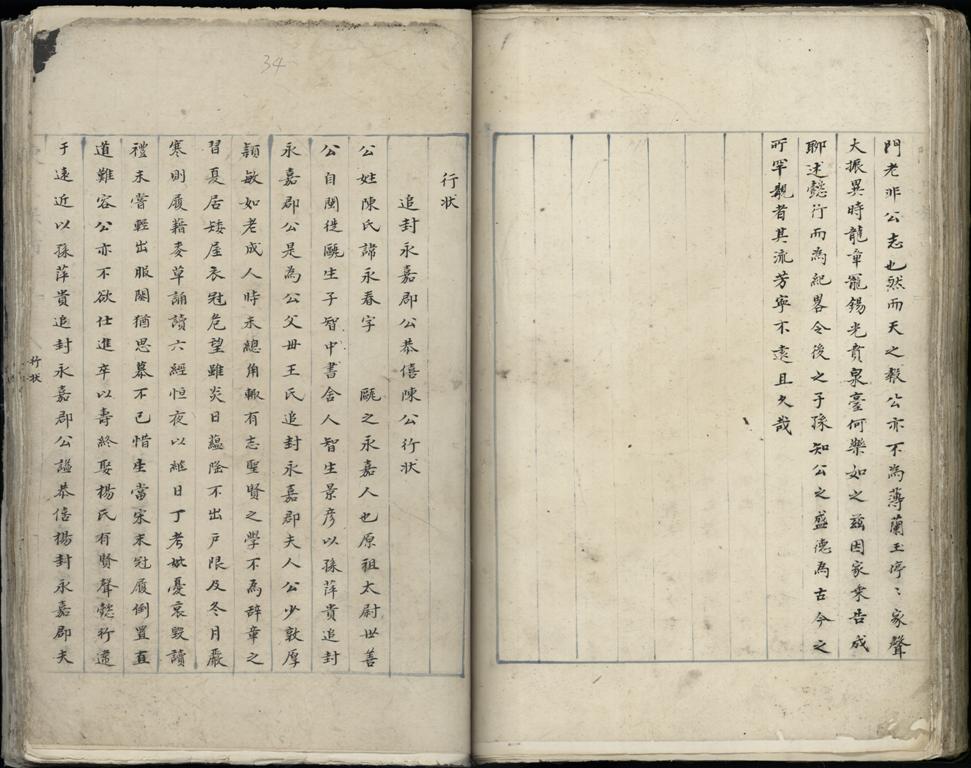 門老非公志也然而天之報公亦不為薄蘭玉渟〻家聲
大振異時龍章寵錫光賁泉臺何樂如之兹因家乘告成
聊述懿行而為紀畧令後之子孫知公之盛德為古今之
所罕覯者其流芳寧不遠且久哉
34
行状
追封永嘉郡公恭僖陳公行状
公姓陳氏諱永春字 甌之永嘉人也原祖太尉世善
公自閩徙甌生子智中書舍人智生景彦以孫萍貴追封
永嘉郡公是為公父毋王氏追封永嘉郡夫人公少敦厚
穎敏如老成人時未總角輙有志聖賢之學不為辞章之
習夏居矮屋衣冠危望雖炎日蘊隆不出戸限及冬月嚴
寒則履藉麥草誦讀六經恒夜以繼日丁考妣憂哀毀讀
禮未嘗輕出服闋猶思慕不已惜生當宋末冠履倒置直
道難容公亦不欲仕進卒以壽終娶楊氏有賢聲懿行遠
于遠近以孫萍貴追封永嘉郡公謚恭僖楊封永嘉郡夫
行状